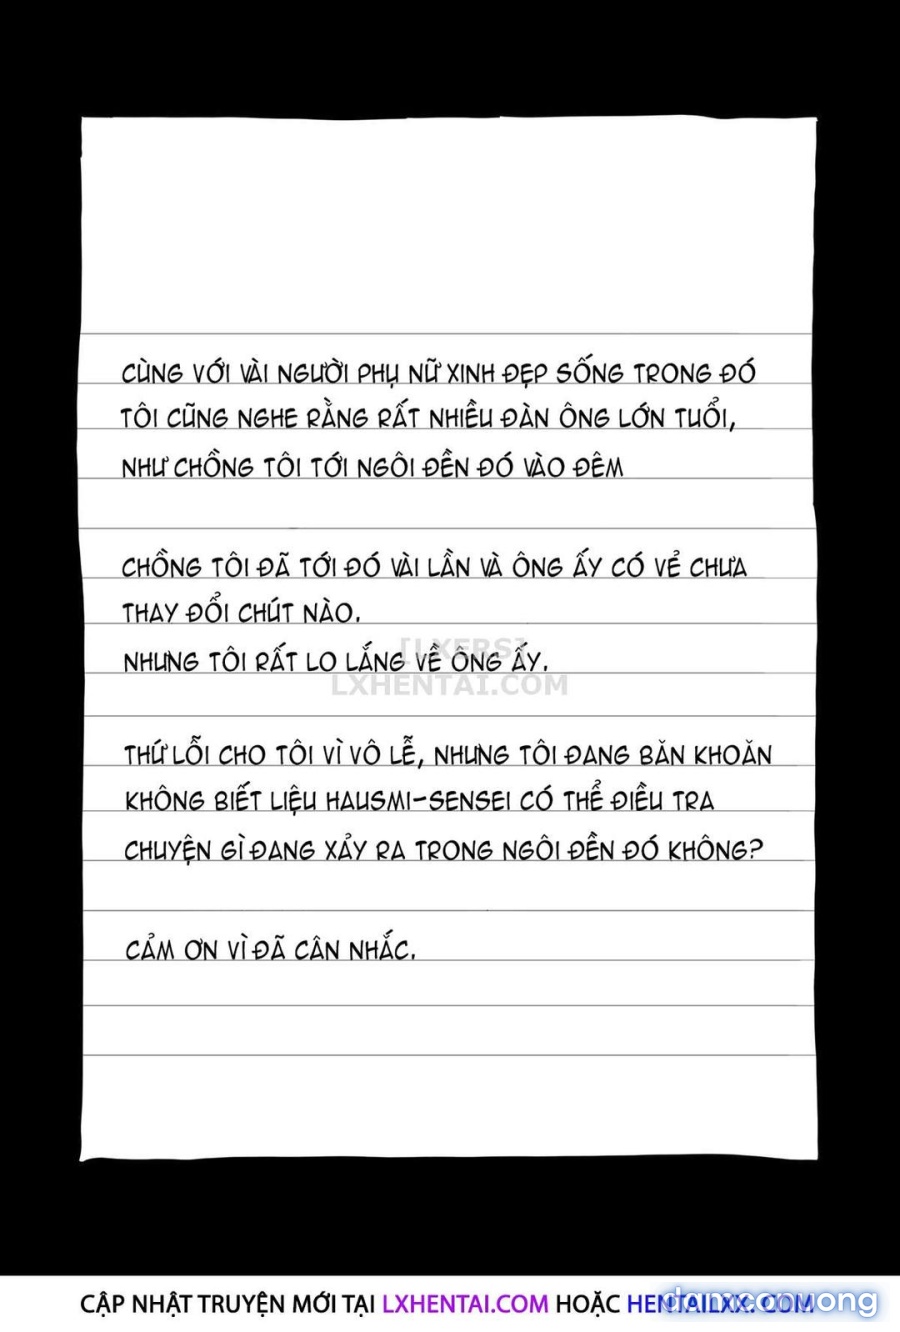 CÙNG VỚI VÀI NGƯỜI PHỤ NỮ XINH ĐẸP SỐNG TRONG ĐÓ
TÔI CŨNG NGHE RẰNG RẤT NHIỀU ĐÀN ÔNG LỚN TUỔI,
NHƯ CHỒNG TÔI TỚI NGÔI ĐỀN ĐÓ VÀO ĐÊM
CHỒNG TÔI ĐÃ TỚI ĐÓ VÀI LẦN VÀ ÔNG ẤY CÓ VẺ CHƯA
THAY ĐỔI CHÚT NÀO.
[LXERS]
NHƯNG TÔI RẤT LO LẮNG VỀ ÔNG ẤY.
LXHENTAI.COM
THỨ LỖI CHO TÔI VÌ VÔ LỄ, NHƯNG TÔI ĐANG BĂN KHOĂN
KHÔNG BIẾT LIỆU HAUSMI-SENSEI CÓ THỂ ĐIỀU TRA
CHUYỆN GÌ ĐANG XẢY RA TRONG NGÔI ĐỀN ĐÓ KHÔNG?
CẢM ƠN VÌ ĐÃ CÂN NHẮC.
CẬP NHẬT TRUYỆN MỚI TẠI LXHENTAI.COM HOẶC HENTAILXX.COM
damconuong